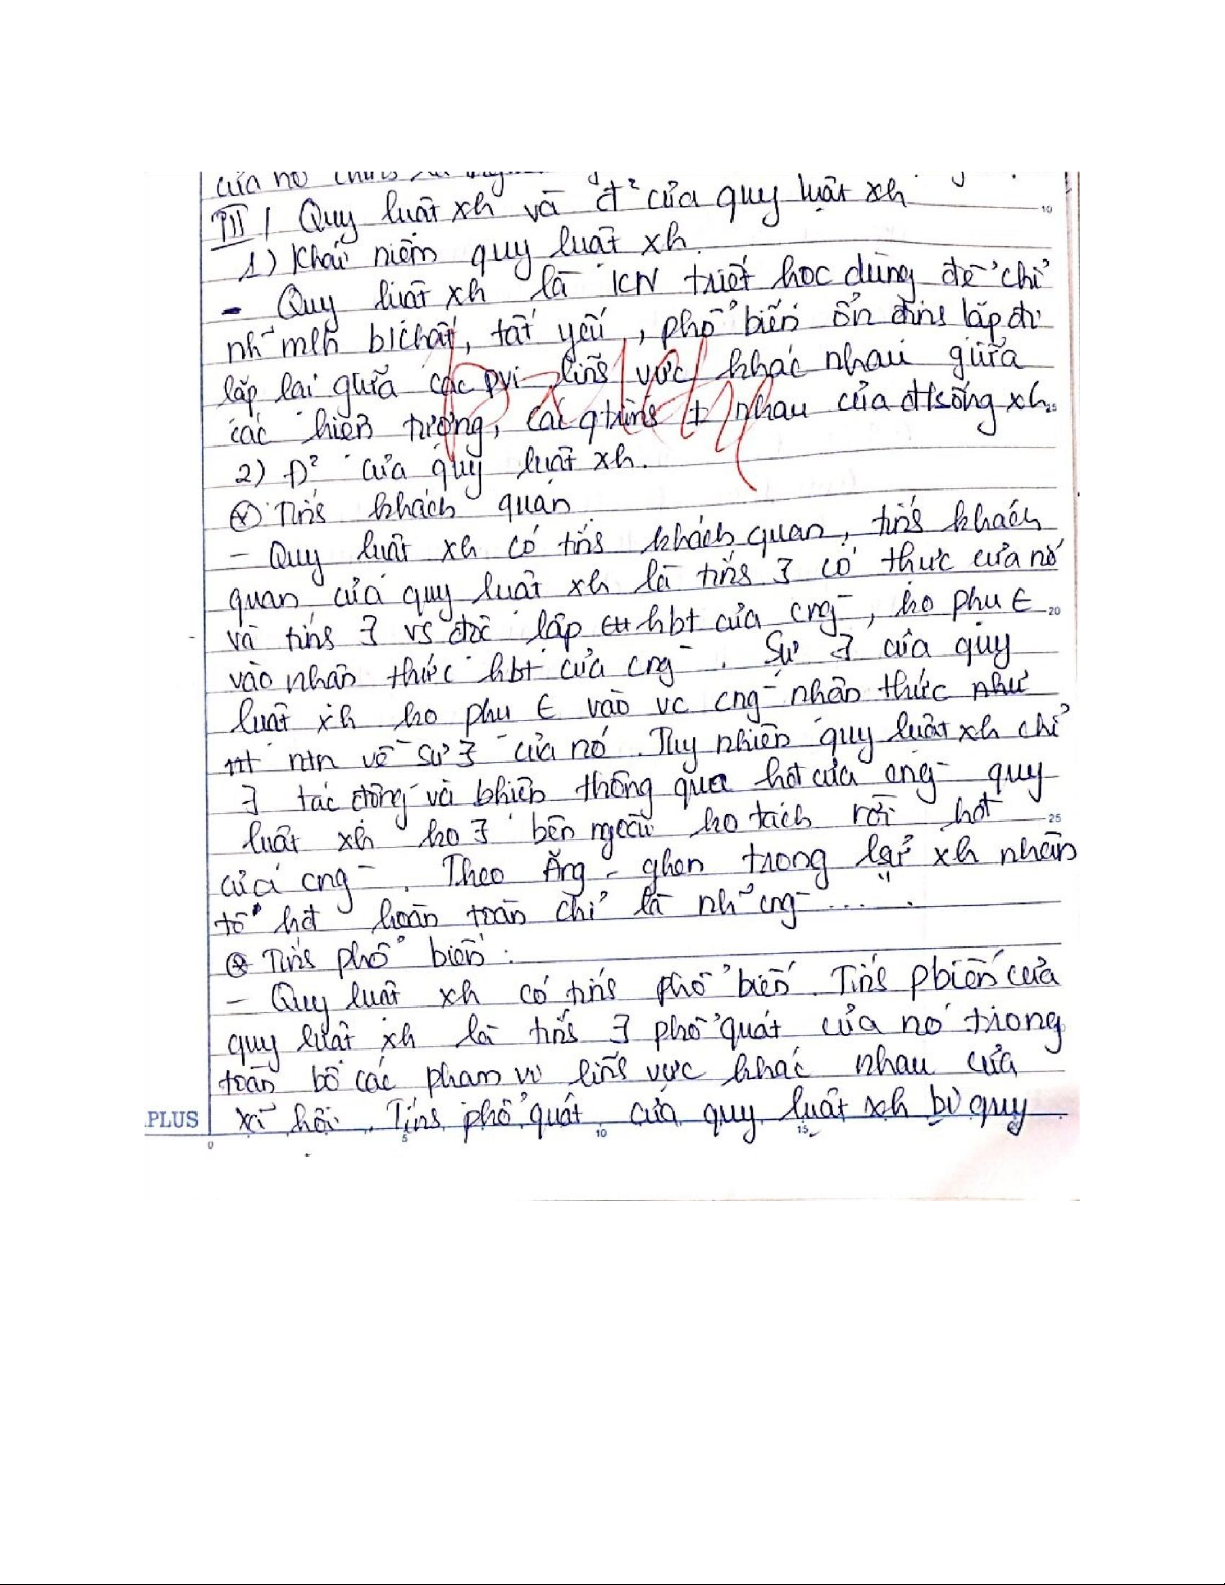 của nó
III / Quy luật xh và đ² của quy luật xh
1) Khái niệm quy luật xh
- Quy luật xh là KN triết học dùng để chỉ
nh~ mlh b/chất, tất yếu, phổ biến ổn định lặp đi
lặp lại giữa các pvi lĩnh vực khác nhau giữa
các hiện tượng, các qtrình ≠ nhau của đ/sống xh.
2) Đ² của quy luật xh.
⊗ Tính khách quan
- Quy luật xh có tính khách quan, tính khách
quan của quy luật xh là tính ∃ có thực của nó
và tính ∃ vs độc lập hđt của cng-, ko phụ ∈
vào nhận thức hđt của cng-. Sự ∃ của quy
luật xh ko phụ ∈ vào vc cng- nhận thức như
ntn về sự ∃ của nó. Tuy nhiên quy luật xh chỉ
∃ tác động và khiến thông qua hđt của cng- quy
luật xh ko ∃ bên ngoài ko tách rời hđt
của cng-. Theo Ăng-ghen trong lsử xh nhân
tố hđt hoàn toàn chỉ là nh~ cng- .... .
⊗ Tính phổ biến:
- Quy luật xh có tính phổ biến. Tính pbiến của
quy luật xh là tính ∃ phổ quát của nó trong
toàn bộ các phạm vi lĩnh vực khác nhau của
xã hội. Tính phổ quát của quy luật xh bị quy
PLUS
10
20
25
0 5 10 15